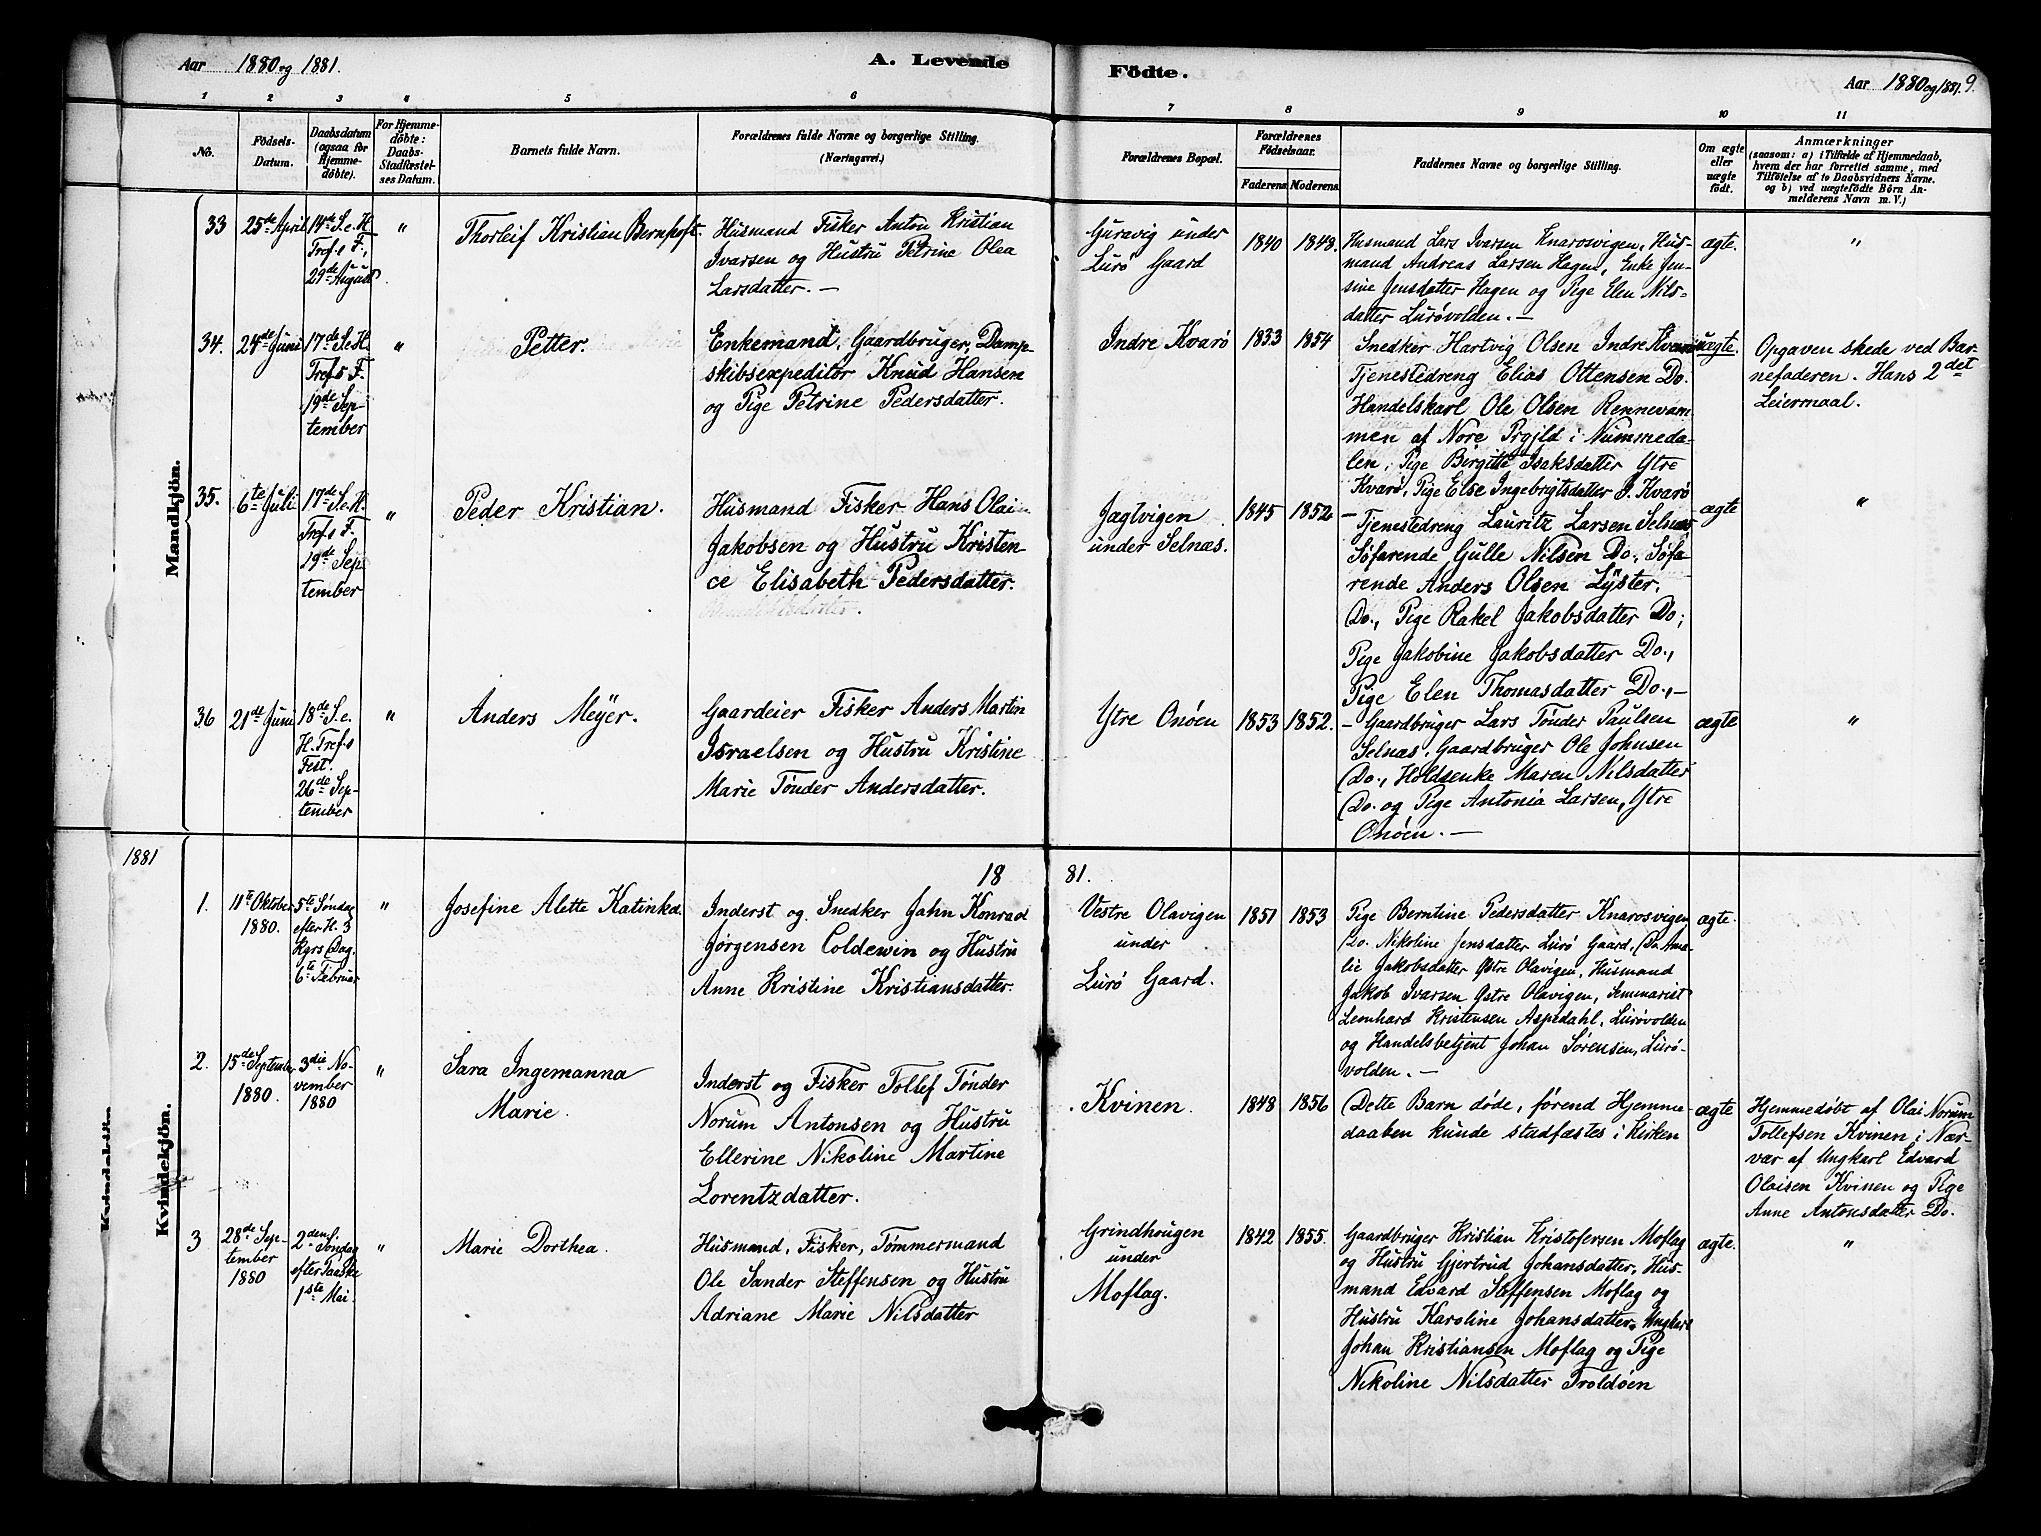 Aar 1880 og 1881.
A. Levende
Födte.
Aar 1880 og 1881. 9.
1 2 3 4 5 6 7 8 9 10 11
No.
Födsels-
Datum.
Daabsdatum
(ogsaa for
Hjemme-
döbte).
For Hjemme-
döbte:
Daabs-
Stadfæstel-
ses Datum.
Barnets fulde Navn.
Forældrenes fulde Navne og borgerlige Stilling.
(Næringsvei.)
Forældrenes Bopæl.
Forældrenes
Födselsaar.
Faderens. Moderens.
Faddernes Navne og borgerlige Stilling.
Om ægte
eller
uægte
födt.
Anmærkninger
(saasom: a) i Tilfælde af Hjemmedaab,
hvem der har forrettet samme, med
Tilföielse af to Daabsvidners Navne.
og b) ved uægtefödte Börn An-
melderens Navn m. V.)
Mandkjön.
33
25de April
14de S. e. H.
Tref.s F.,
29de August
"
Thorleif Kristian Bernhoft.
Husmand Fisker Anton Kristian
Ivarsen og Hustru Petrine Olea
Larsdatter. —
Guravig under
Lurö Gaard
1840
1848.
Husmand Lars Ivarsen Knarosvigen, Hus-
mand Andreas Larsen Hagen, Enke Jen-
sine Jensdatter Hagen og Pige Elen Nils-
datter Lurövolden. —
ægte.
"
34.
24de Juni
17de S. e. H.
Tref.s F.
19de Sep-
tember
"
Petter.
Enkemand, Gaardbruger, Damp-
skibsexpeditör Knud Hansen
og Pige Petrine Pedersdatter.
Indre Kvarö
1833
1854
Snedker Hartvig Olsen Indre Kvarö
Tjenestedreng Elias Ottensen Do.
Handelskarl Ole Olsen Rennevam-
men af Nore Prgjld i Nummeda-
len, Pige Birgitte Isaksdatter Ytre
Kvarö, Pige Else Ingebrigtsdatter I. Kvarö
uægte.
Opgaven skede ved Bar-
nefaderen. Hans 2det
Leiermaal.
35.
6te Juli
17de S. e. H.
Tref.s F.
19de Sep
tember
"
Peder Kristian.
Husmand Fisker Hans Olai
Jakobsen og Hustru Kristen-
ce Elisabeth Pedersdatter.
Jægtvigen
under Selnæs.
1845
1852
— Tjenestedreng Lauritz Larsen Selnæs
Söfarende Gulle Nilsen Do., Söfa-
rende Anders Olsen Lyster,
Do., Pige Rakel Jakobsdatter Do;
Pige Jakobine Jakobsdatter Do.,
Pige Elen Thomasdatter Do., —
ægte
"
36
21de Juni
18de S. e.
H. Tref.s
Fest.
26de Sep-
tember
"
Anders Meyer.
Gaardeier Fisker Anders Martin
Israelsen og Hustru Kristine
Marie Tönder Andersdatter.
Ytre Onöen
1853
1852.
— Gaardbruger Lars Tönder Paulsen
Selnæs, Gaardbruger Ole Johnsen
Do., Holdsenke Maren Nilsdatter
Do. og Pige Antonia Larsen, Ytre
Onöen. —
ægte
"
1881
18
81.
Kvindekjön.
Kvindekjön.
1.
11te Oktober
1880.
5te Söndag
efter H. 3
Kgrs Dag.
6te Februar
"
Josefine Alette Katinka.
Inderst og Snedker Jahn Konrad
Jörgensen Coldewin og Hustru
Anne Kristine Kristiansdatter.
Vestre Olavigen
under
Lurö Gaard.
1851
1853
Pige Berntine Pedersdatter Knarosvigen
Do. Nikoline Jensdatter Lurö Gaard, Do. Ama-
lie Jakobsdatter Östre Olavigen, Husmand
Jakob Ivarsen Östre Olavigen, Seminarist
Leonhard Kristensen Aspedahl, Lurövolden
og Handelsbetjent Johan Sörensen, Lurö-
volden. —
ægte.
2.
15de September
1880.
3die No-
vember
1880
"
Sara Ingemanna
Marie.
Inderst og Fisker Tollef Tönder
Norum Antonsen og Hustru
Ellerine Nikoline Martine
Lorentzdatter.
Kvinen.
1848
1856
Dette Barn döde, förend Hjemme-
daaben kunde stadfæstes i Kirken
ægte
Hjemmedöbt af Olai Norum
Tollefsen Kvinen i Nær-
vær af Ungkarl Edvard
Olaisen Kvinen og Pige
Anne Antonsdatter Do.
3
28de Sep-
tember
1880
2den S.
Söndag
efter Paaske
1ste Mai.
"
Marie Dorthea.
Husmand, Fisker, Tömmermand
Ole Sander Steffensen og Hustru
Adriane Marie Nilsdatter
Grindhougen
under
Moflag.
1842
1855.
Gaardbruger Kristian Kristofersen Moflag
og Hustru Gjertrud Johansdatter, Hus-
mand Edvard Steffensen Moflag og
Hustru Karoline Johansdatter, Ungkarl
Johan Kristiansen Moflag og Pige
Nikoline Nilsdatter Troldöen
ægte.
"